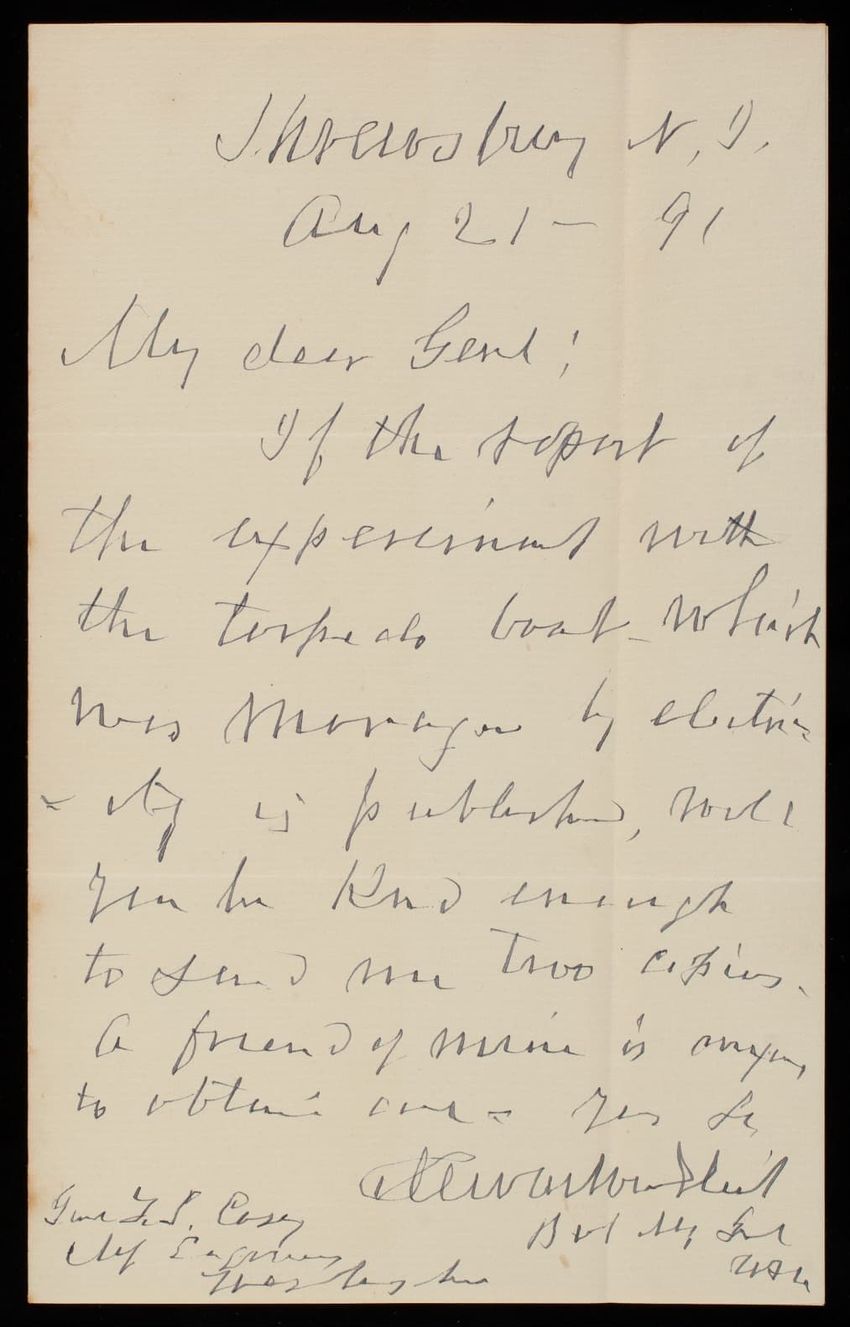 Shrewsbury N, J.
Aug 21 - 91
My dear Genl!
If the report of
the experiment with
the torpedo boat - which
was manage by electri=
= city is published, will
you be kind enough
to send me two copies.
A friend of mine is anxious
to obtain one - Yrs &c,
Bvt Maj Genl
USA
Genl T. L. Casey
Chf Engineers
Washington